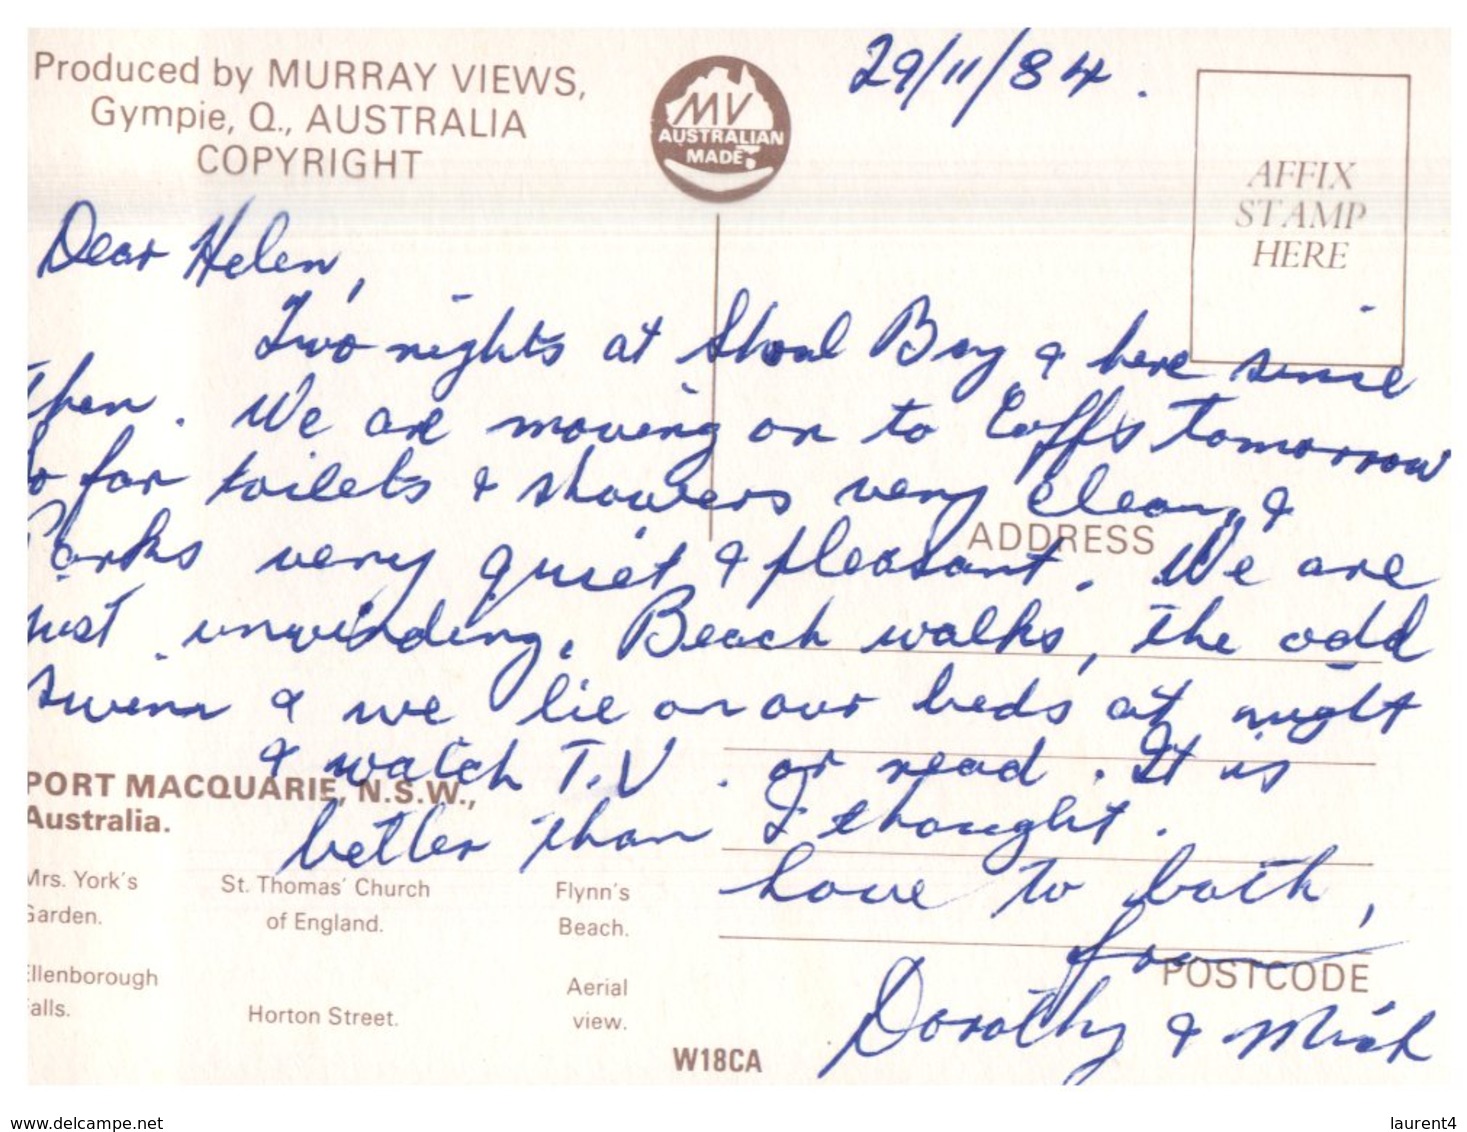 Produced by MURRAY VIEWS,
Gympie, Q., AUSTRALIA
COPYRIGHT
MV
AUSTRALIAN
MADE
29/11/84.
AFFIX
STAMP
HERE
Dear Helen,
Two nights at Shoal Bay & here since
then. We are moving on to Coffs tomorrow
So far toilets & showers very clean, &
Parks very quiet & pleasant. We are
just unwinding. Beach walks, the odd
swim & we lie on our beds at night
& watch T.V. or read. It is
better than I thought.
Love to both,
from
Dorothy & Mick
ADDRESS
POSTCODE
PORT MACQUARIE, N.S.W.,
Australia.
Mrs. York's
Garden.
St. Thomas' Church
of England.
Flynn's
Beach.
Ellenborough
Falls.
Horton Street.
Aerial
view.
W18CA
delcampe.net
laurent4